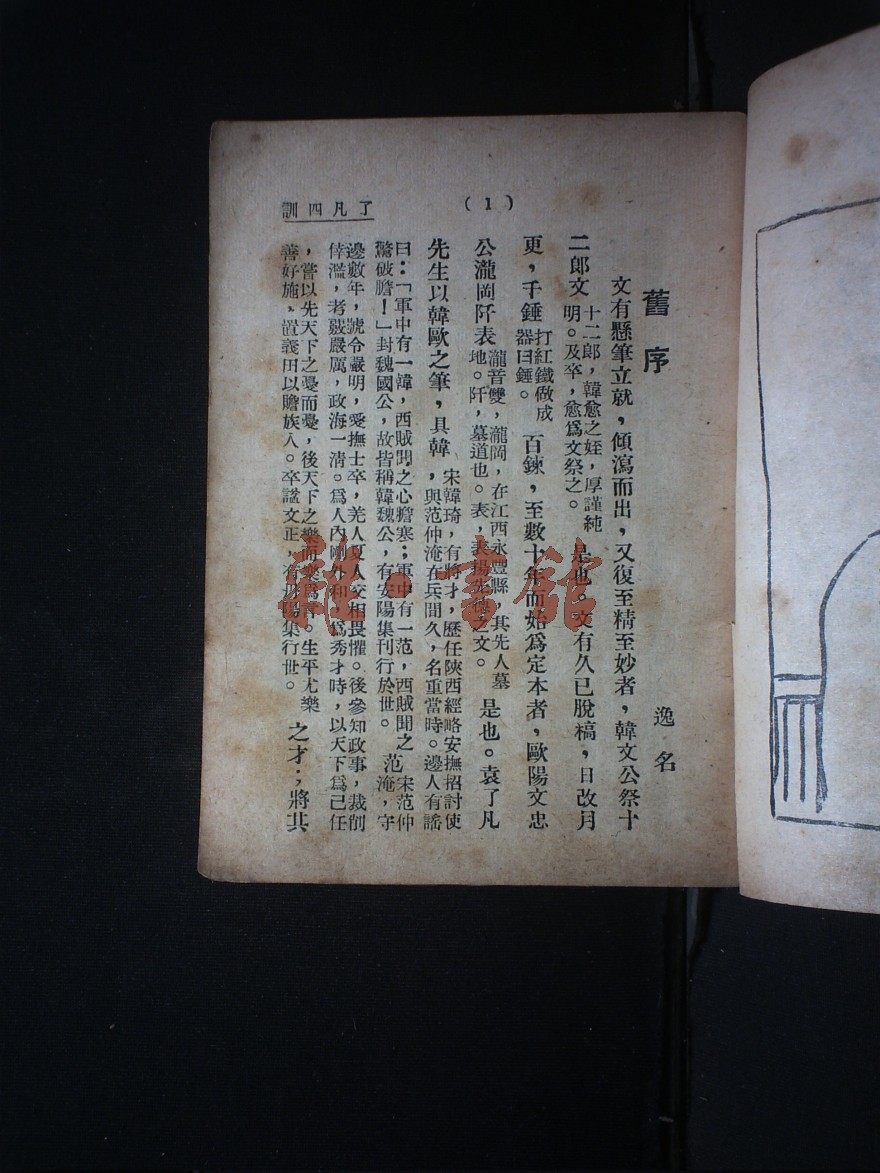 了凡四訓
(1)
舊序
逸名
文有懸筆立就，傾瀉而出，又復至精至妙者，韓文公祭十
二郎文十二郎，韓愈之姪，厚謹純明。及卒，愈爲文祭之。是也。文有久已脫稿，日改月
更，千錘打紅鐵做成器曰錘。百鍊，至數十年而始爲定本者，歐陽文忠
公瀧岡阡表瀧音雙，瀧岡，在江西永豐縣，其先人墓地。阡，墓道也。表，表揚先德之文。是也。袁了凡
先生以韓歐之筆，具韓宋韓琦，有將才，歷任陝西經略安撫招討使，與范仲淹在兵間久，名重當時。邊人有謠
曰：「軍中有一韓，西賊聞之心膽寒；軍中有一范，西賊聞之驚破膽！」封魏國公，故皆稱韓魏公，有安陽集刊行於世。范宋范仲淹，守
邊數年，號令嚴明，愛撫士卒，羌人夏人交相畏懼。後參知政事，裁削倖濫，考覈嚴厲，政海一淸。爲人內剛外和，爲秀才時，以天下爲己任
，嘗以先天下之憂而憂，後天下之樂而樂爲言。生平尤樂善好施，置義田以贍族人。卒諡文正，有丹陽集行世。之才；將其
雅書館